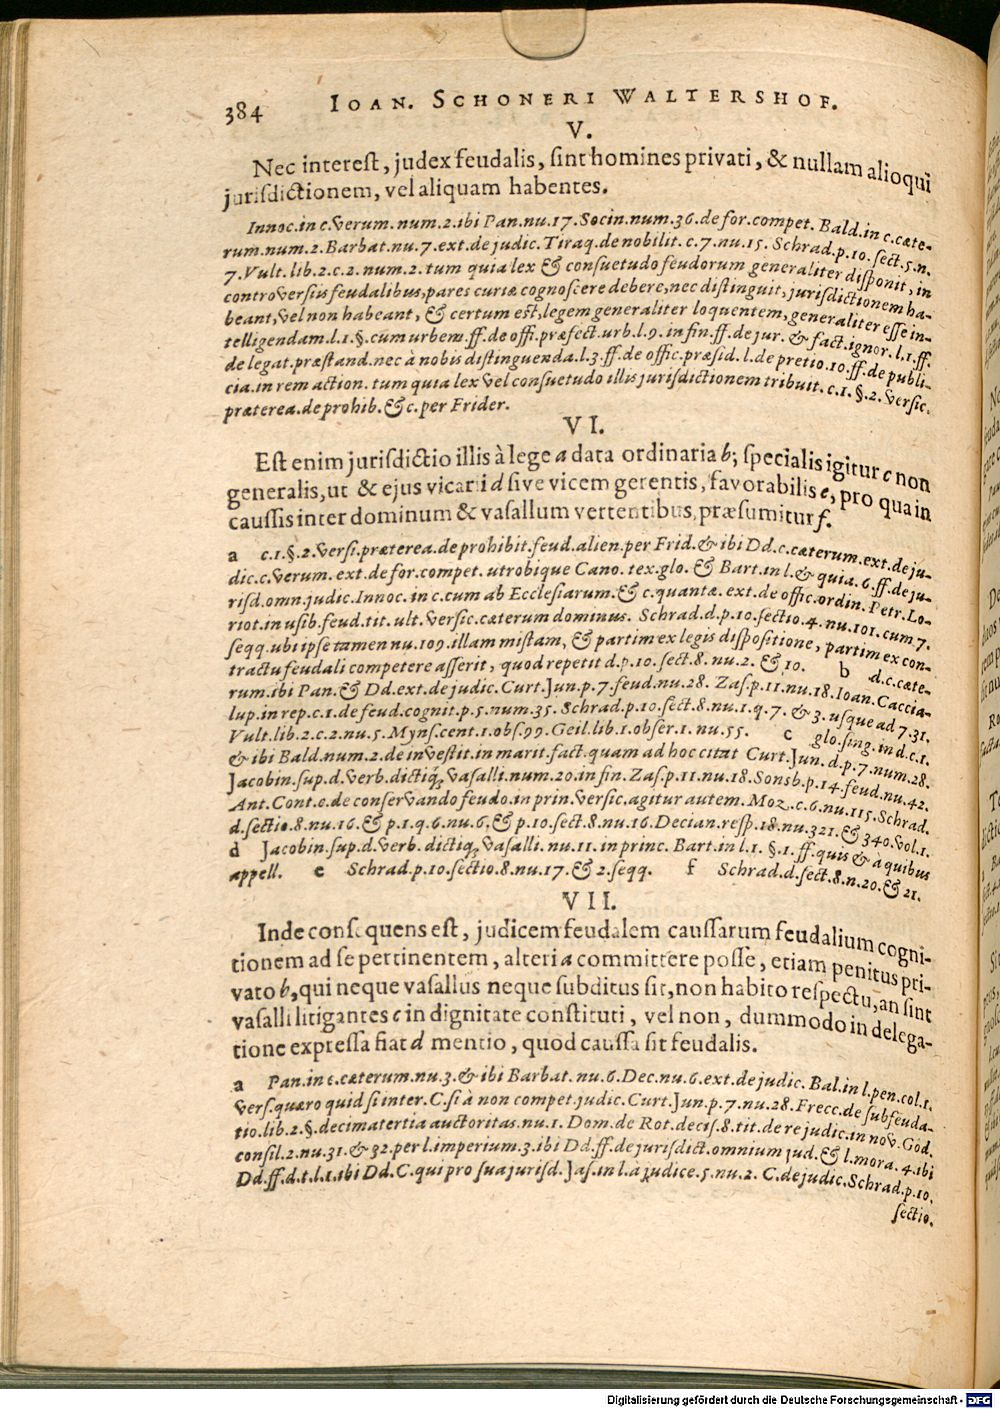 384 IOAN. SCHONERI WALTERSHOF.
V.
Nec interest, judex feudalis, sint homines privati, & nullam alioqui
jurisdictionem, vel aliquam habentes.
Innoc. in c. verum. num. 2. ibi Pan. nu. 17. Socin. num. 36. de for. compet. Bald. in c. cæte-
rum. num. 2. Barbat. nu. 7. ext. de judic. Tiraq. de nobilit. c. 7. nu. 15. Schrad. p. 10. sect. 5. n.
7. Vult. lib. 2. c. 2. num. 2. tum quia lex & consuetudo feudorum generaliter disponit, in
controversiis feudalibus, pares curiæ cognoscere debere, nec distinguit, jurisdictionem ha-
beant, vel non habeant, & certum est, legem generaliter loquentem, generaliter esse in-
telligendam. l. 1. §. cum urbem. ff. de offi. præfect. urb. l. 9. in fin. ff. de jur. & fact. ignor. l. 1. ff.
de legat. præstand. nec à nobis distinguenda. l. 3. ff. de offic. præsid. l. de pretio. 10. ff. de publi-
cia. in rem action. tum quia lex vel consuetudo illis jurisdictionem tribuit. c. 1. §. 2. versic.
præterea. de prohib. & c. per Frider.
VI.
Est enim jurisdictio illis à lege a data ordinaria b; specialis igitur c non
generalis, ut & ejus vicarii d sive vicem gerentis, favorabilis e, pro qua in
caussis inter dominum & vasallum vertentibus, præsumitur f.
a c. 1. §. 2. versi. præterea. de prohibit. feud. alien. per Frid. & ibi Dd. c. cæterum. ext. de ju-
dic. c. verum. ext. de for. compet. utrobique Cano. tex. glo. & Bart. in l. & quia. 6. ff. de ju-
risd. omn. judic. Innoc. in c. cum ab Ecclesiarum. & c. quantæ. ext. de offic. ordin. Petr. Lo-
riot. in usib. feud. tit. ult. versic. caterum dominus. Schrad. d. p. 10. sectio. 4. nu. 101. cum 7.
seqq. ubi ipse tamen nu. 109. illam mistam, & partim ex legis dispositione, partim ex con-
tractu feudali competere asserit, quod repetit d. p. 10. sect. 8. nu. 2. & 10. b d. c. cæte-
rum. ibi Pan. & Dd. ext. de judic. Curt. Jun. p. 7. feud. nu. 28. Zas. p. 11. nu. 18. Ioan. Caccia-
lup. in rep. c. 1. de feud. cognit. p. 5. num. 35. Schrad. p. 10. sect. 8. nu. 1. q. 7. & 3. usque ad 7. 31.
Vult. lib. 2. c. 2. nu. 5. Myns. cent. 1. obs. 99. Geil. lib. 1. obser. 1. nu. 55. c glo. sing. in d. c. 1.
& ibi Bald. num. 2. de investit. in marit. fact. quam ad hoc citat Curt. Jun. d. p. 7. num. 28.
Jacobin. sup. d. verb. dictiq; vasalli. num. 20. in fin. Zas. p. 11. nu. 18. Sonsb. p. 14. feud. nu. 42.
Ant. Cont. c. de conservando feudo. in prin. versic. agitur autem. Moz. c. 6. nu. 115. Schrad.
d. sectio. 8. nu. 16. & p. 1. q. 6. nu. 6. & p. 10. sect. 8. nu. 16. Decian. resp. 18. nu. 321. & 340. vol. 1.
d Jacobin. sup. d. verb. dictiq; vasalli. nu. 11. in princ. Bart. in l. 1. §. 1. ff. quis & à quibus
appell. e Schrad. p. 10. sectio. 8. nu. 17. & 2. seqq. f Schrad. d. sect. 8. n. 20. & 21.
VII.
Inde consequens est, judicem feudalem caussarum feudalium cogni-
tionem ad se pertinentem, alteri a committere posse, etiam penitus pri-
vato b, qui neque vasallus neque subditus sit, non habito respectu, an sint
vasalli litigantes c in dignitate constituti, vel non, dummodo in delega-
tione expressa fiat d mentio, quod caussa sit feudalis.
a Pan. in c. cæterum. nu. 3. & ibi Barbat. nu. 6. Dec. nu. 6. ext. de judic. Bal. in l. pen. col. 1.
vers. quæro quid si inter. C. si à non compet. judic. Curt. Jun. p. 7. nu. 28. Frecc. de subfeuda-
tio. lib. 2. §. decimatertia auctoritas. nu. 1. Dom. de Rot. decis. 8. tit. de re judic. in nov. God.
consil. 2. nu. 31. & 32. per l. imperium. 3. ibi Dd. ff. de jurisdict. omnium jud. & l. mora. 4. ibi
Dd. ff. d. t. l. 1. ibi Dd. C. qui pro sua jurisd. Jas. in l. à judice. 5. nu. 2. C. de judic. Schrad. p. 10.
sectio.
Digitalisierung gefördert durch die Deutsche Forschungsgemeinschaft - DFG